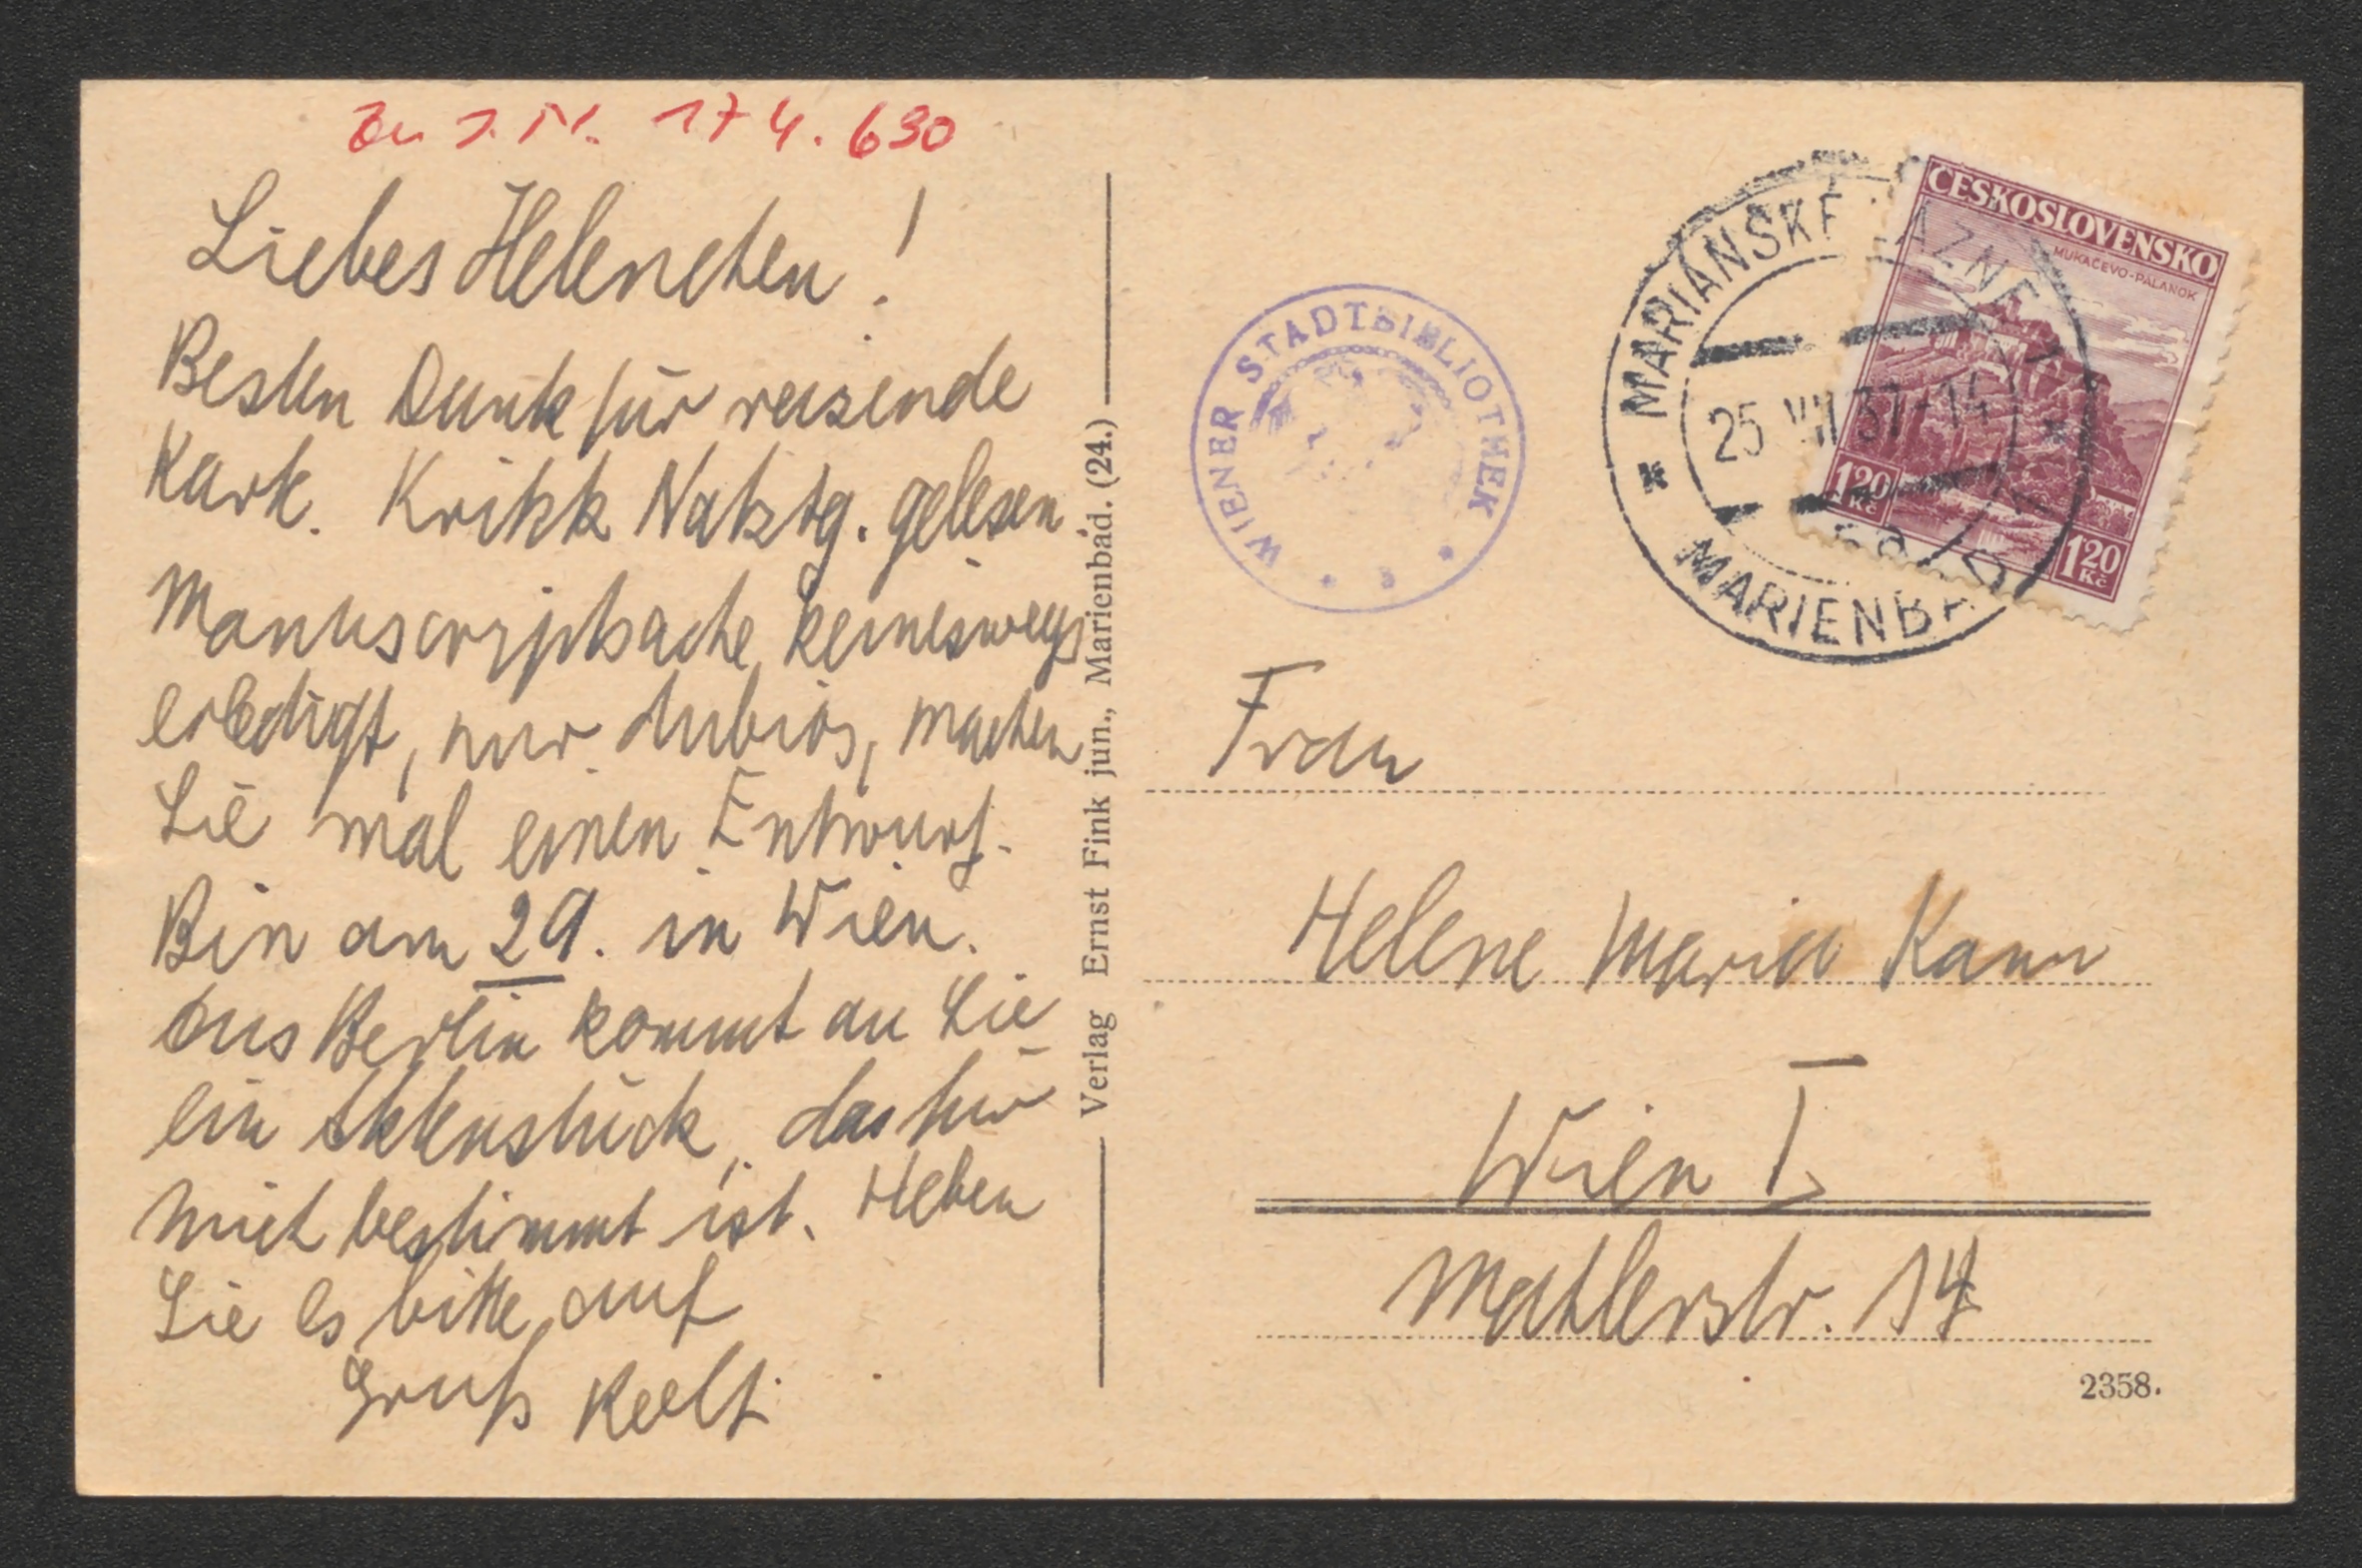 Zu I.N. 174.630
Liebes Helenchen!
Besten Dank für reizende
Karte. Kritik Natztg. gelesen
Manuscriptsache keineswegs
erledigt, nur dubiös, machen
Sie mal einen Entwurf.
Bin am 29. in Wien.
Aus Berlin kommt an Sie
ein Aktenstück, das für
mich bestimmt ist. Heben
Sie es bitte auf
Gruß
Verlag Ernst Fink jun., Marienbad. (24.)
WIENER STADTBIBLIOTHEK
MARIÁNSKÉ LÁZNĚ 1
25 VII 37-14
MARIENBAD
ČESKOSLOVENSKO
MUKAČEVO-PALANOK
1.20 Kč
1.20 Kč
Frau
Helene Maria Kann
Wien I,
Mahlerstr. 14
2358.